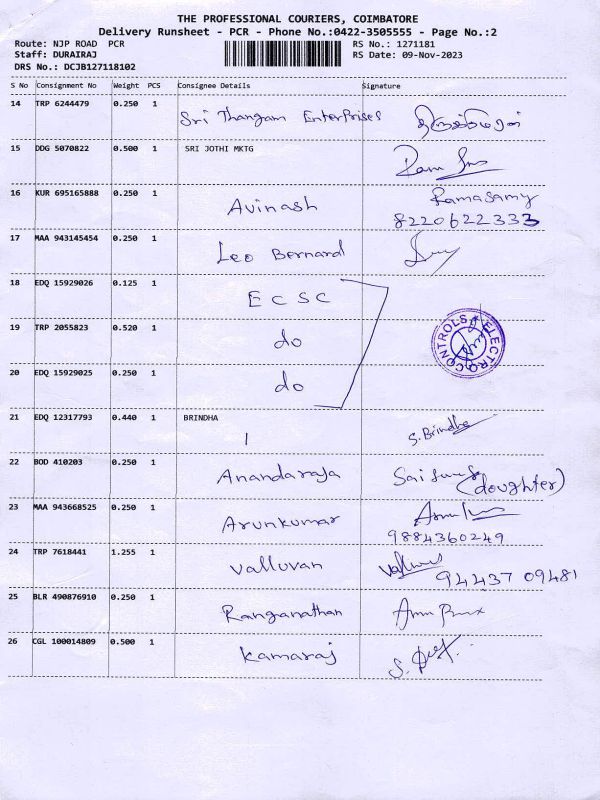 THE PROFESSIONAL COURIERS, COIMBATORE
Delivery Runsheet - PCR - Phone No.:0422-3505555 - Page No.:2
Route: NJP ROAD PCR
Staff: DURAIRAJ
DRS No.: DCJB127118102
RS No.: 1271181
RS Date: 09-Nov-2023
S No Consignment No Weight PCS Consignee Details Signature
14 TRP 6244479 0.250 1 Sri Thangam Enterprises
15 DDG 5070822 0.500 1 SRI JOTHI MKTG
16 KUR 695165888 0.250 1 Avinash Ramasamy
8220622333
17 MAA 943145454 0.250 1 Leo Bernard
18 EDQ 15929026 0.125 1 ECSC
19 TRP 2055823 0.520 1 do
CONTROLS ELECTRO
20 EDQ 15929025 0.250 1 do
21 EDQ 12317793 0.440 1 BRINDHA S. Brindha
22 BOD 410203 0.250 1 Anandaraja (doughter)
23 MAA 943668525 0.250 1 Arunkumar
9884360249
24 TRP 7618441 1.255 1 Valluvan
94437 09481
25 BLR 490876910 0.250 1 Ranganathan
26 CGL 100014809 0.500 1 Kamaraj